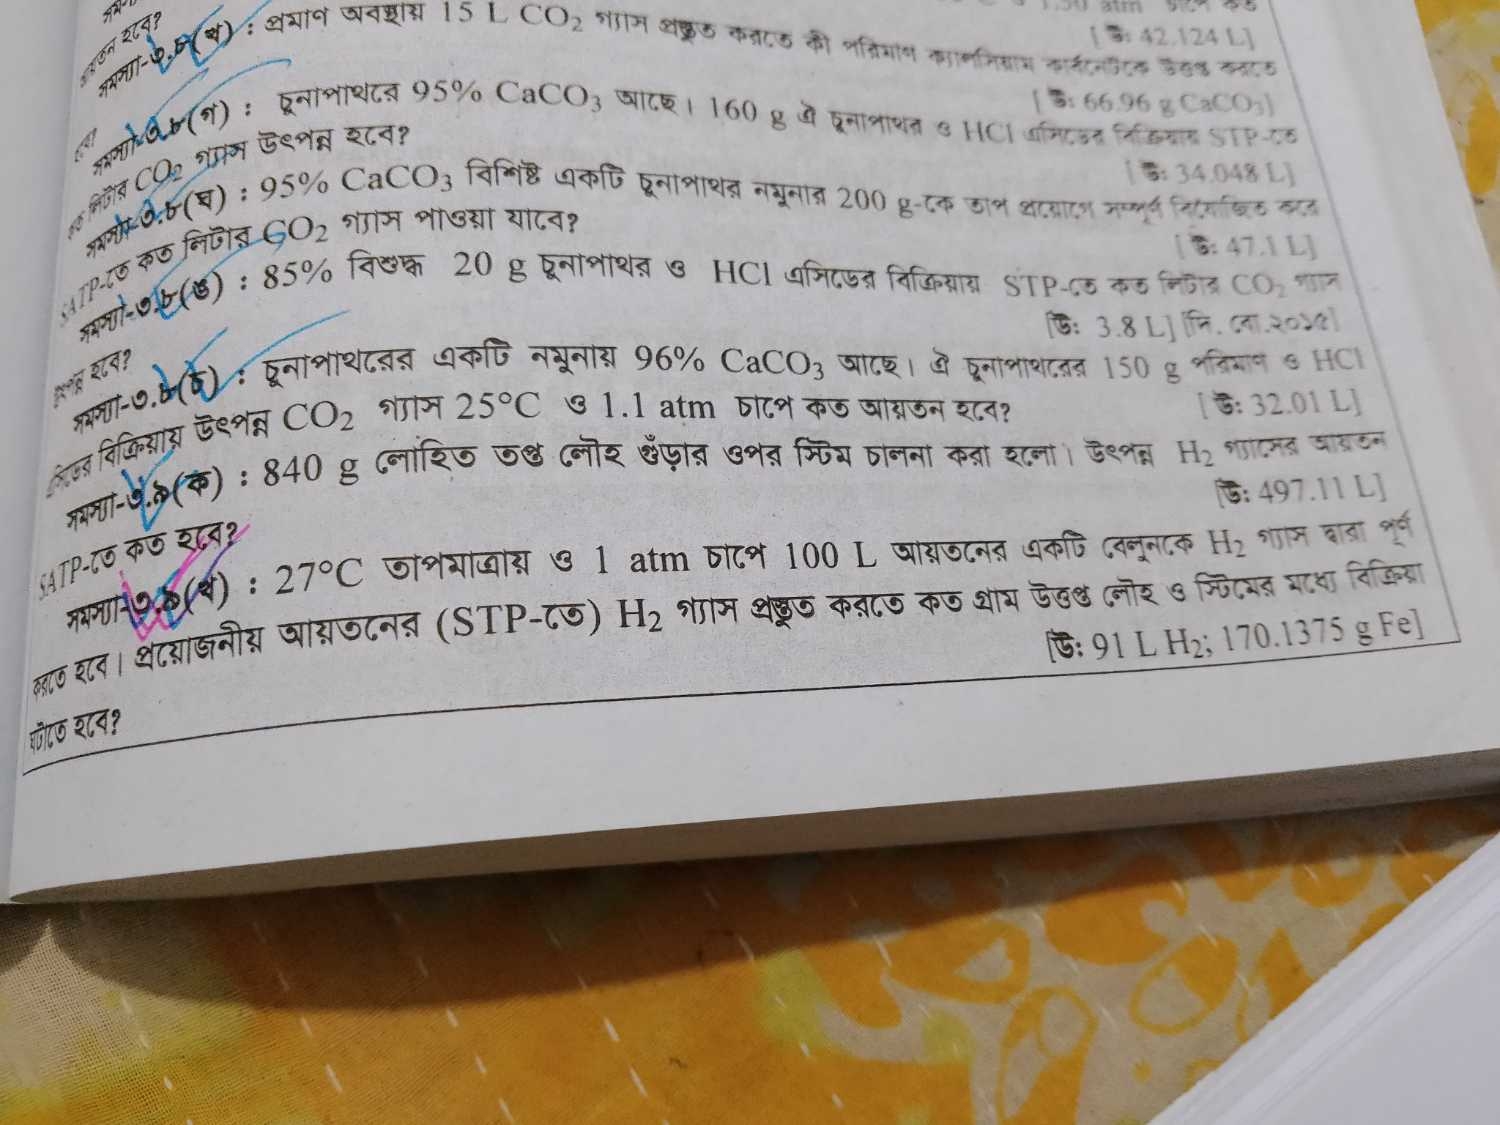 1.50 atm চাপে কত
আয়তন হবে? [উ: 42.124 L]
সমস্যা-৩.৮(খ) : প্রমাণ অবস্থায় 15 L CO₂ গ্যাস প্রস্তুত করতে কী পরিমাণ ক্যালসিয়াম কার্বনেটকে উত্তপ্ত করতে
হবে? [উ: 66.96 g CaCO₃]
সমস্যা-৩.৮(গ) : চুনাপাথরে 95% CaCO₃ আছে। 160 g ঐ চুনাপাথর ও HCl এসিডের বিক্রিয়ায় STP-তে
কত লিটার CO₂ গ্যাস উৎপন্ন হবে? [উ: 34.048 L]
সমস্যা-৩.৮(ঘ) : 95% CaCO₃ বিশিষ্ট একটি চুনাপাথর নমুনার 200 g-কে তাপ প্রয়োগে সম্পূর্ণ বিযোজিত করে
SATP-তে কত লিটার CO₂ গ্যাস পাওয়া যাবে? [উ: 47.1 L]
সমস্যা-৩.৮(ঙ) : 85% বিশুদ্ধ 20 g চুনাপাথর ও HCl এসিডের বিক্রিয়ায় STP-তে কত লিটার CO₂ গ্যাস
উৎপন্ন হবে? [উ: 3.8 L] [দি. বো.২০১৫]
সমস্যা-৩.৮(চ) : চুনাপাথরের একটি নমুনায় 96% CaCO₃ আছে। ঐ চুনাপাথরের 150 g পরিমাণ ও HCl
এসিডের বিক্রিয়ায় উৎপন্ন CO₂ গ্যাস 25°C ও 1.1 atm চাপে কত আয়তন হবে? [উ: 32.01 L]
সমস্যা-৩.৯(ক) : 840 g লোহিত তপ্ত লৌহ গুঁড়ার ওপর স্টিম চালনা করা হলো। উৎপন্ন H₂ গ্যাসের আয়তন
SATP-তে কত হবে? [উ: 497.11 L]
সমস্যা-৩.৯(খ) : 27°C তাপমাত্রায় ও 1 atm চাপে 100 L আয়তনের একটি বেলুনকে H₂ গ্যাস দ্বারা পূর্ণ
করতে হবে। প্রয়োজনীয় আয়তনের (STP-তে) H₂ গ্যাস প্রস্তুত করতে কত গ্রাম উত্তপ্ত লৌহ ও স্টিমের মধ্যে বিক্রিয়া
ঘটাতে হবে? [উ: 91 L H₂; 170.1375 g Fe]